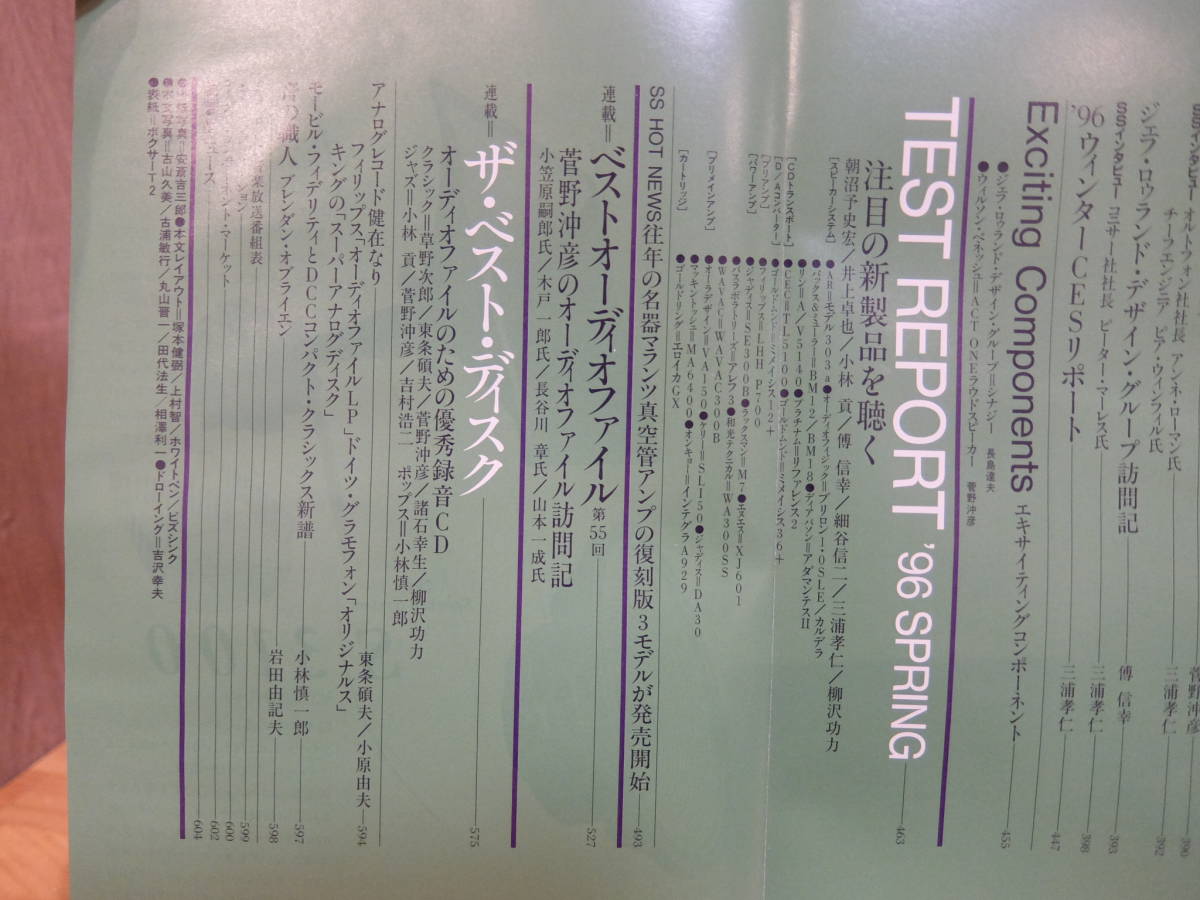 SSインタビュー オルトフォン社社長 アンネ・ローマン氏
菅野沖彦
390
チーフエンジニア ピア・ウィンフィル氏
三浦孝仁
392
ジェフ・ロゥランド・デザイン・グループ訪問記
SSインタビュー コニサー社社長 ピーター・マーレス氏
傅 信幸
393
三浦孝仁
398
'96ウィンターCESリポート
三浦孝仁
447
Exciting Components エキサイティングコンポーネント
455
●ジェフ・ロゥランド・デザイン・グループ=シナジー 長島達夫
●ウィルソン・ベネッシュ=ACT ONEラウドスピーカー 菅野沖彦
TEST REPORT '96 SPRING
463
注目の新製品を聴く
朝沼予史宏/井上卓也/小林 貢/傅 信幸/細谷信二/三浦孝仁/柳沢功力
[スピーカーシステム]
●ARモデル303a●オーディオフィジック=ブリロン1・0SLE/カルデラ
●バックス&ミューラー=BM12/BM18●ディアパソン=アダマンテスII
●リン=A/V5140●プラチナム=リファレンス2
[CDトランスポート]
●CEC=TL5100●ゴールドムンド=ミメイシス36+
[D/Aコンバーター]
●ゴールドムンド=ミメイシス12+
[プリアンプ]
●フィリップス=LHH P700
[パワーアンプ]
●ジャディス=SE300B●ラックスマン=M7●エヌエス=XJ601
●パスラボラトリーズ=アレフ3●和光テクニカル=WA300SS
●WAVAC=WAVAC300B
[プリメインアンプ]
●オーラデザイン=VA150●ケリー=SLI50●ジャディス=DA30
●マッキントッシュ=MA6400●オンキョー=インテグラA929
[カートリッジ]
●ゴールドリング=エロイカGX
SS HOT NEWS往年の名器マランツ真空管アンプの復刻版 3モデルが発売開始
493
連載=ベストオーディオファイル 第55回
527
菅野沖彦のオーディオファイル訪問記
小笠原嗣郎氏/木戸一郎氏/長谷川 章氏/山本一成氏
連載=ザ・ベスト・ディスク
575
オーディオファイルのための優秀録音CD
クラシック=草野次郎/東条碩夫/菅野沖彦/諸石幸生/柳沢功力
ジャズ=小林 貢/菅野沖彦/吉村浩二 ポップス=小林慎一郎
アナログレコード健在なり
東条碩夫/小原由夫
594
フィリップス「オーディオファイルLP」ドイツ・グラモフォン「オリジナルス」
キングの「スーパーアナログディスク」
モービル・フィデリティとDCCコンパクト・クラシックス新譜
小林慎一郎
597
音の職人 ブレンダン・オブライエン
岩田由記夫
598
音楽放送番組表
599
600
602
604
●本文レイアウト=塚本健弼/上村智/ホワイトペン/ビズシンク
●本文写真=古山久美/古浦敏行/丸山晋一/田代法生 相澤利一●ドローイング=吉沢幸夫
●表紙=ボクサーT2